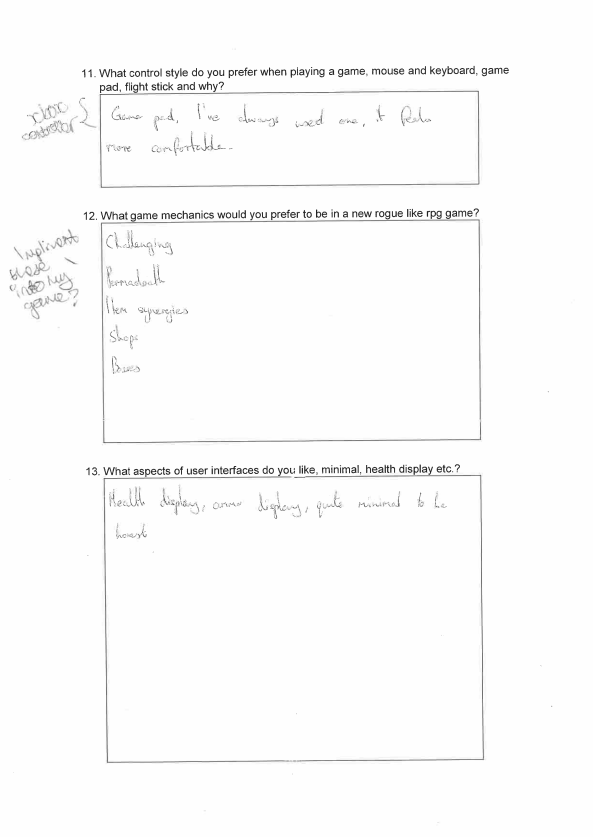 11. What control style do you prefer when playing a game, mouse and keyboard, game
pad, flight stick and why?
xbox
controller
Game pad, I've always used one, it feels
more comfortable.
12. What game mechanics would you prefer to be in a new rogue like rpg game?
into my
game?
Challenging
Permadeath
Item synergies
Shops
13. What aspects of user interfaces do you like, minimal, health display etc.?
Health display, ammo display, quite minimal to be
honest